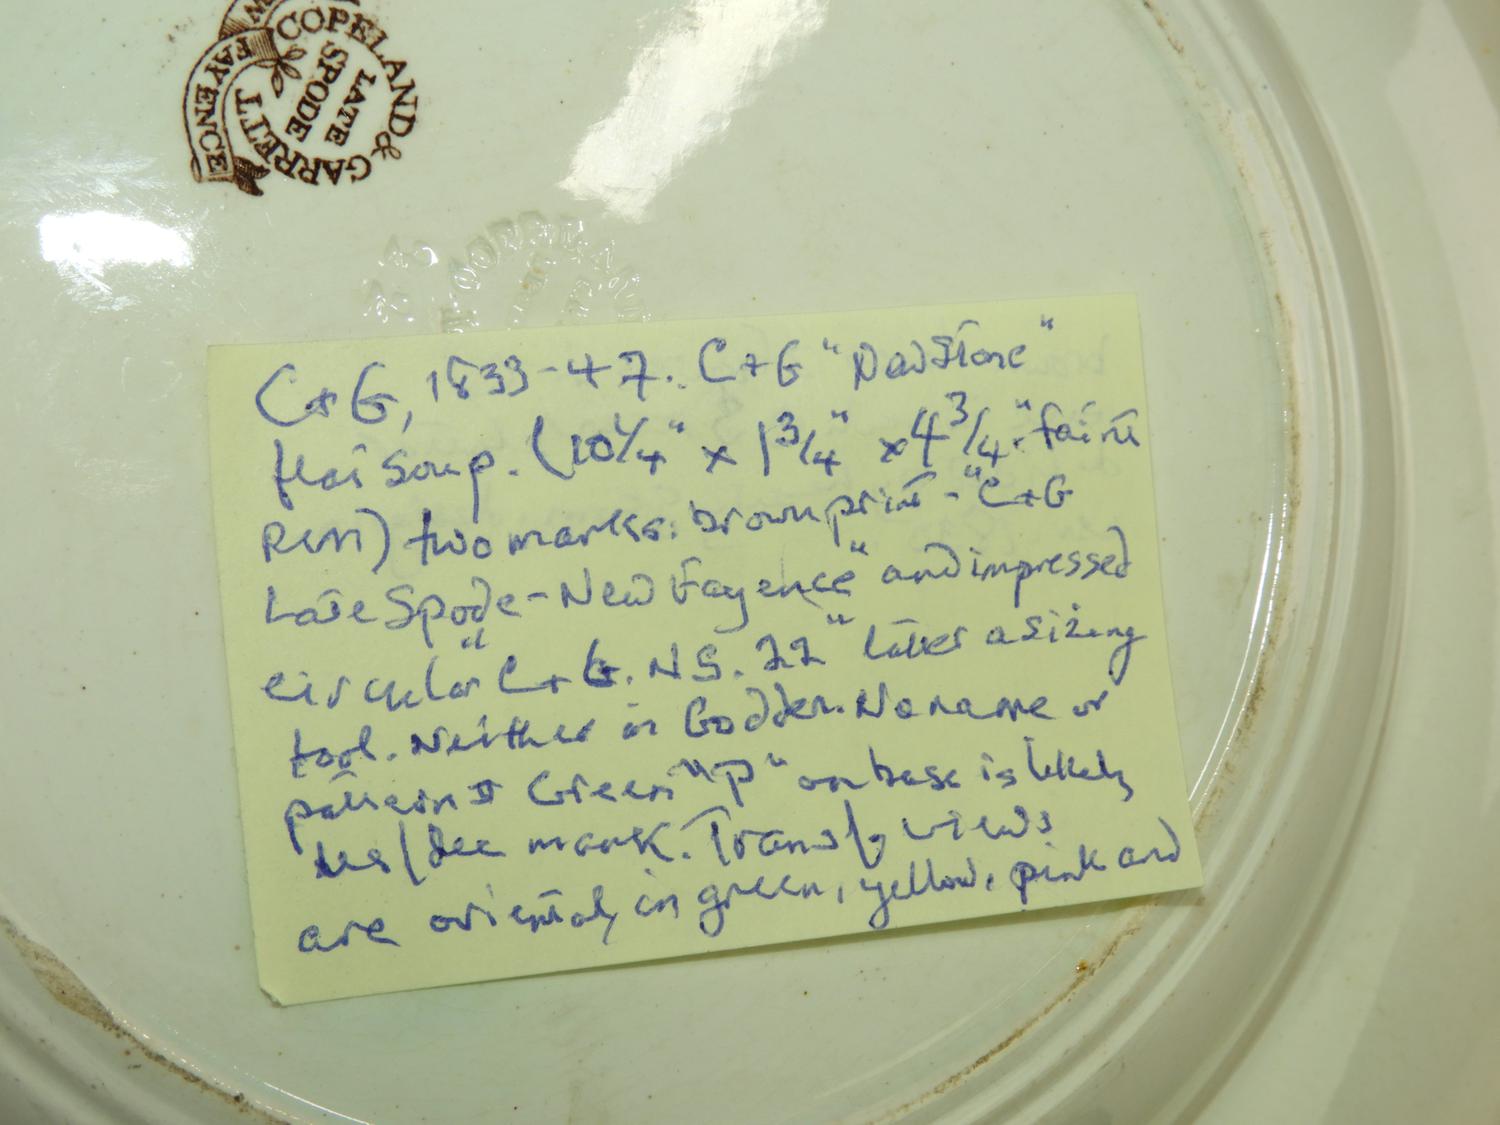 COPELAND & GARRETT
LATE
SPODE
FAYENCE
C+G, 1833-47. C+G "NewStone"
flat Soup. (10¼" x 1¾" x 4¾" faint
two marks: brown print - "C+G
Late Spode - New Fayence" and impressed
circular "C+G. N.S. 22" latter a sizing
tool. Neither in Godden. No name or
pattern # Green "P" on base is likely
/dec mark. Transfer views
are oriental, in green, yellow, pink and